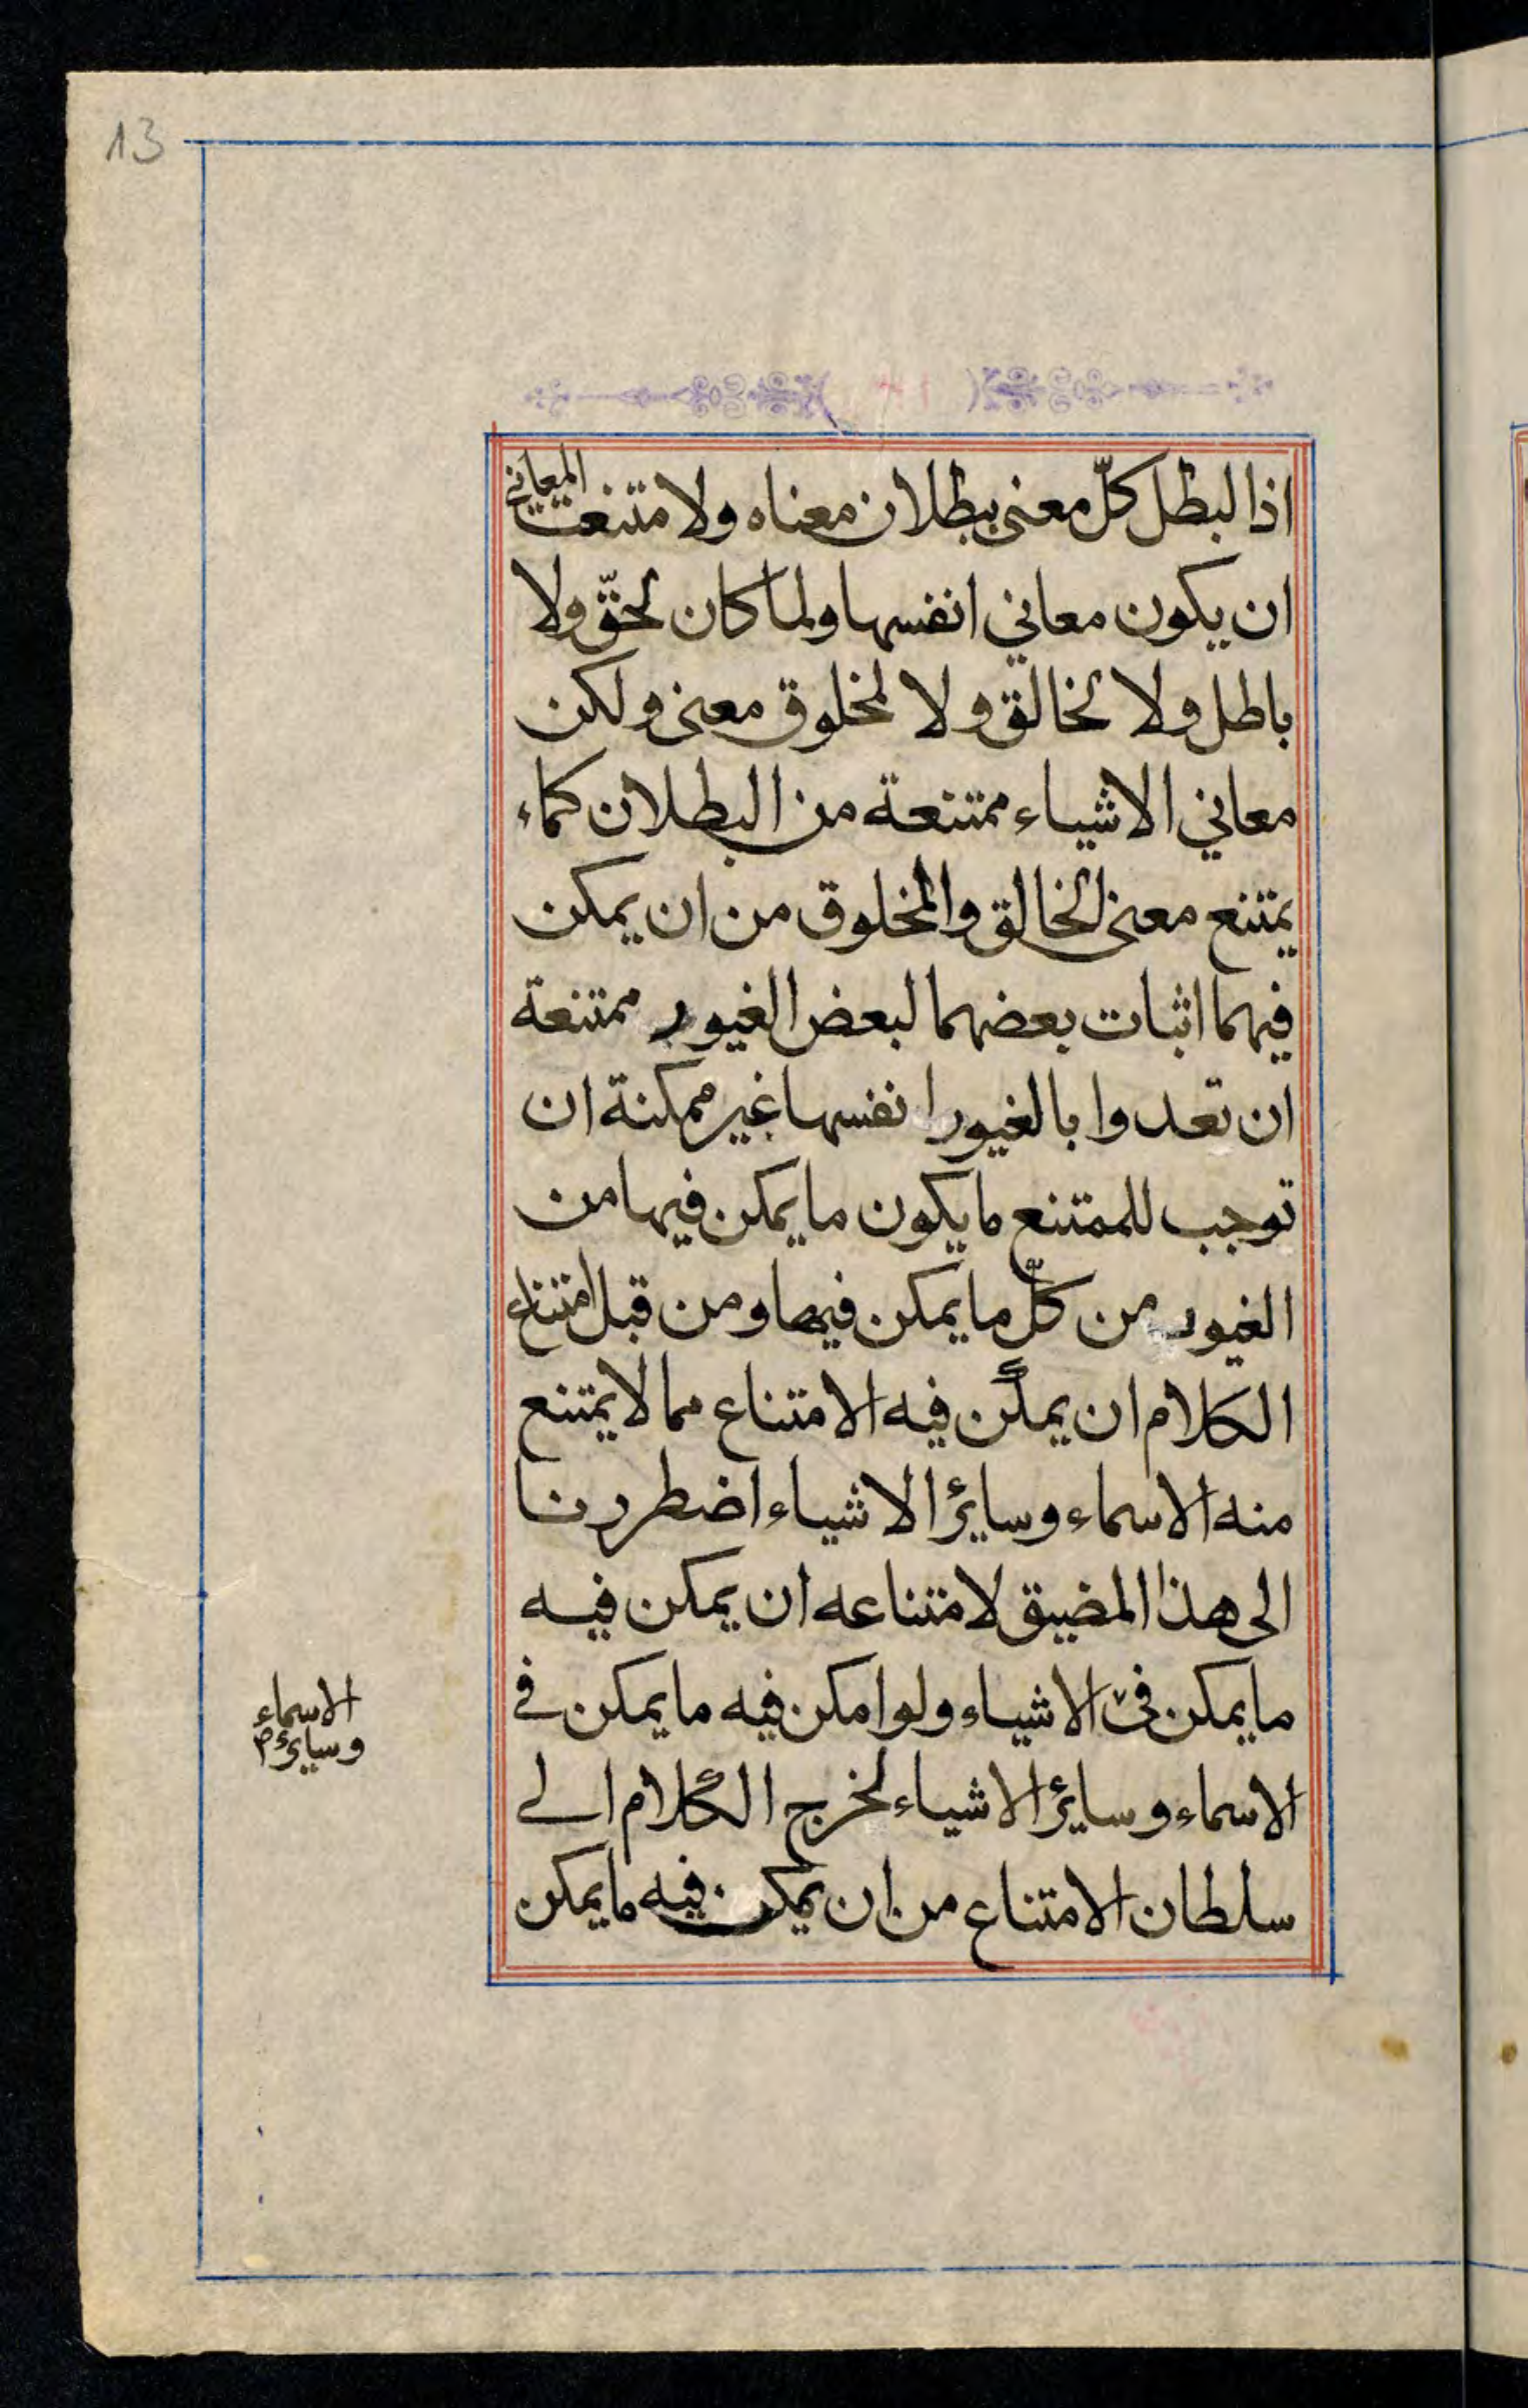 13
اذا لبطل كلّ معنى ببطلان معناه ولا متنعت المعاني
ان يكون معاني انفسها ولما كان لحقّ ولا
باطل ولا لخالق ولا لمخلوق معنى ولكن
معاني الاشياء ممتنعة من البطلان كماء
يمتنع معنى الخالق والمخلوق من ان يمكن
فيهما اثبات بعضهما لبعض الغيور ممتنعة
ان تعدوا بالغيور انفسها غير ممكنة ان
توجب للممتنع ما يكون ما يمكن فيها من
الغيور من كلّ ما يمكن فيها ومن قبل امتناع
الكلام ان يمكن فيه الامتناع مما لا يمتنع
منه الاسماء وسائر الاشياء اضطررنا
الى هذا المضيق لامتناعه ان يمكن فيه
ما يمكن في الاشياء ولو امكن فيه ما يمكن في
الاسماء وسائر الاشياء لخرج الكلام الى
سلطان الامتناع من ان يمكن فيه ما يمكن
الاسماء
وسائر